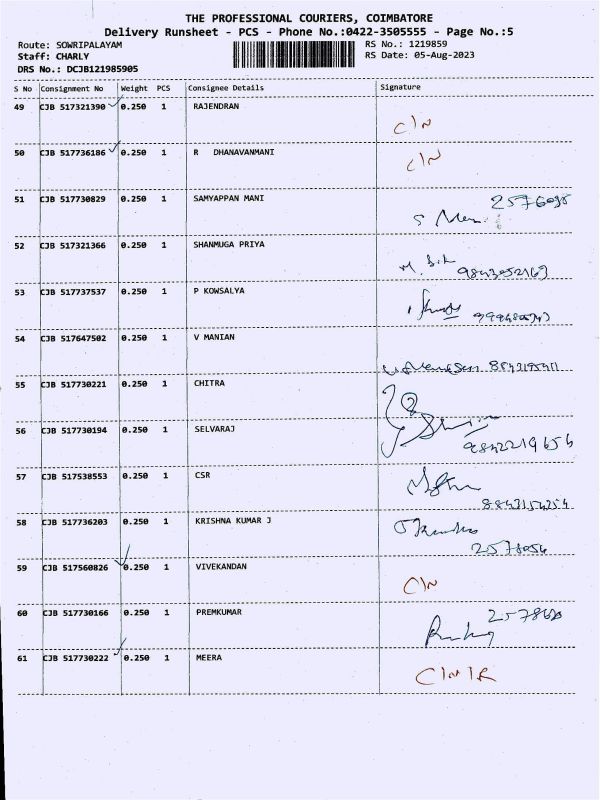 THE PROFESSIONAL COURIERS, COIMBATORE
Delivery Runsheet - PCS - Phone No.:0422-3505555 - Page No.:5
Route: SOWRIPALAYAM RS No.: 1219859
Staff: CHARLY RS Date: 05-Aug-2023
DRS No.: DCJB121985905
S No Consignment No Weight PCS Consignee Details Signature
49 CJB 517321390 0.250 1 RAJENDRAN
C/N
50 CJB 517736186 0.250 1 R DHANAVANMANI
C/N
51 CJB 517730829 0.250 1 SAMYAPPAN MANI
52 CJB 517321366 0.250 1 SHANMUGA PRIYA
9843052169
53 CJB 517737537 0.250 1 P KOWSALYA
54 CJB 517647502 0.250 1 V MANIAN
55 CJB 517730221 0.250 1 CHITRA
56 CJB 517730194 0.250 1 SELVARAJ
9842219656
57 CJB 517538553 0.250 1 CSR
58 CJB 517736203 0.250 1 KRISHNA KUMAR J
59 CJB 517560826 0.250 1 VIVEKANDAN
C/N
60 CJB 517730166 0.250 1 PREMKUMAR
61 CJB 517730222 0.250 1 MEERA
C/N/R